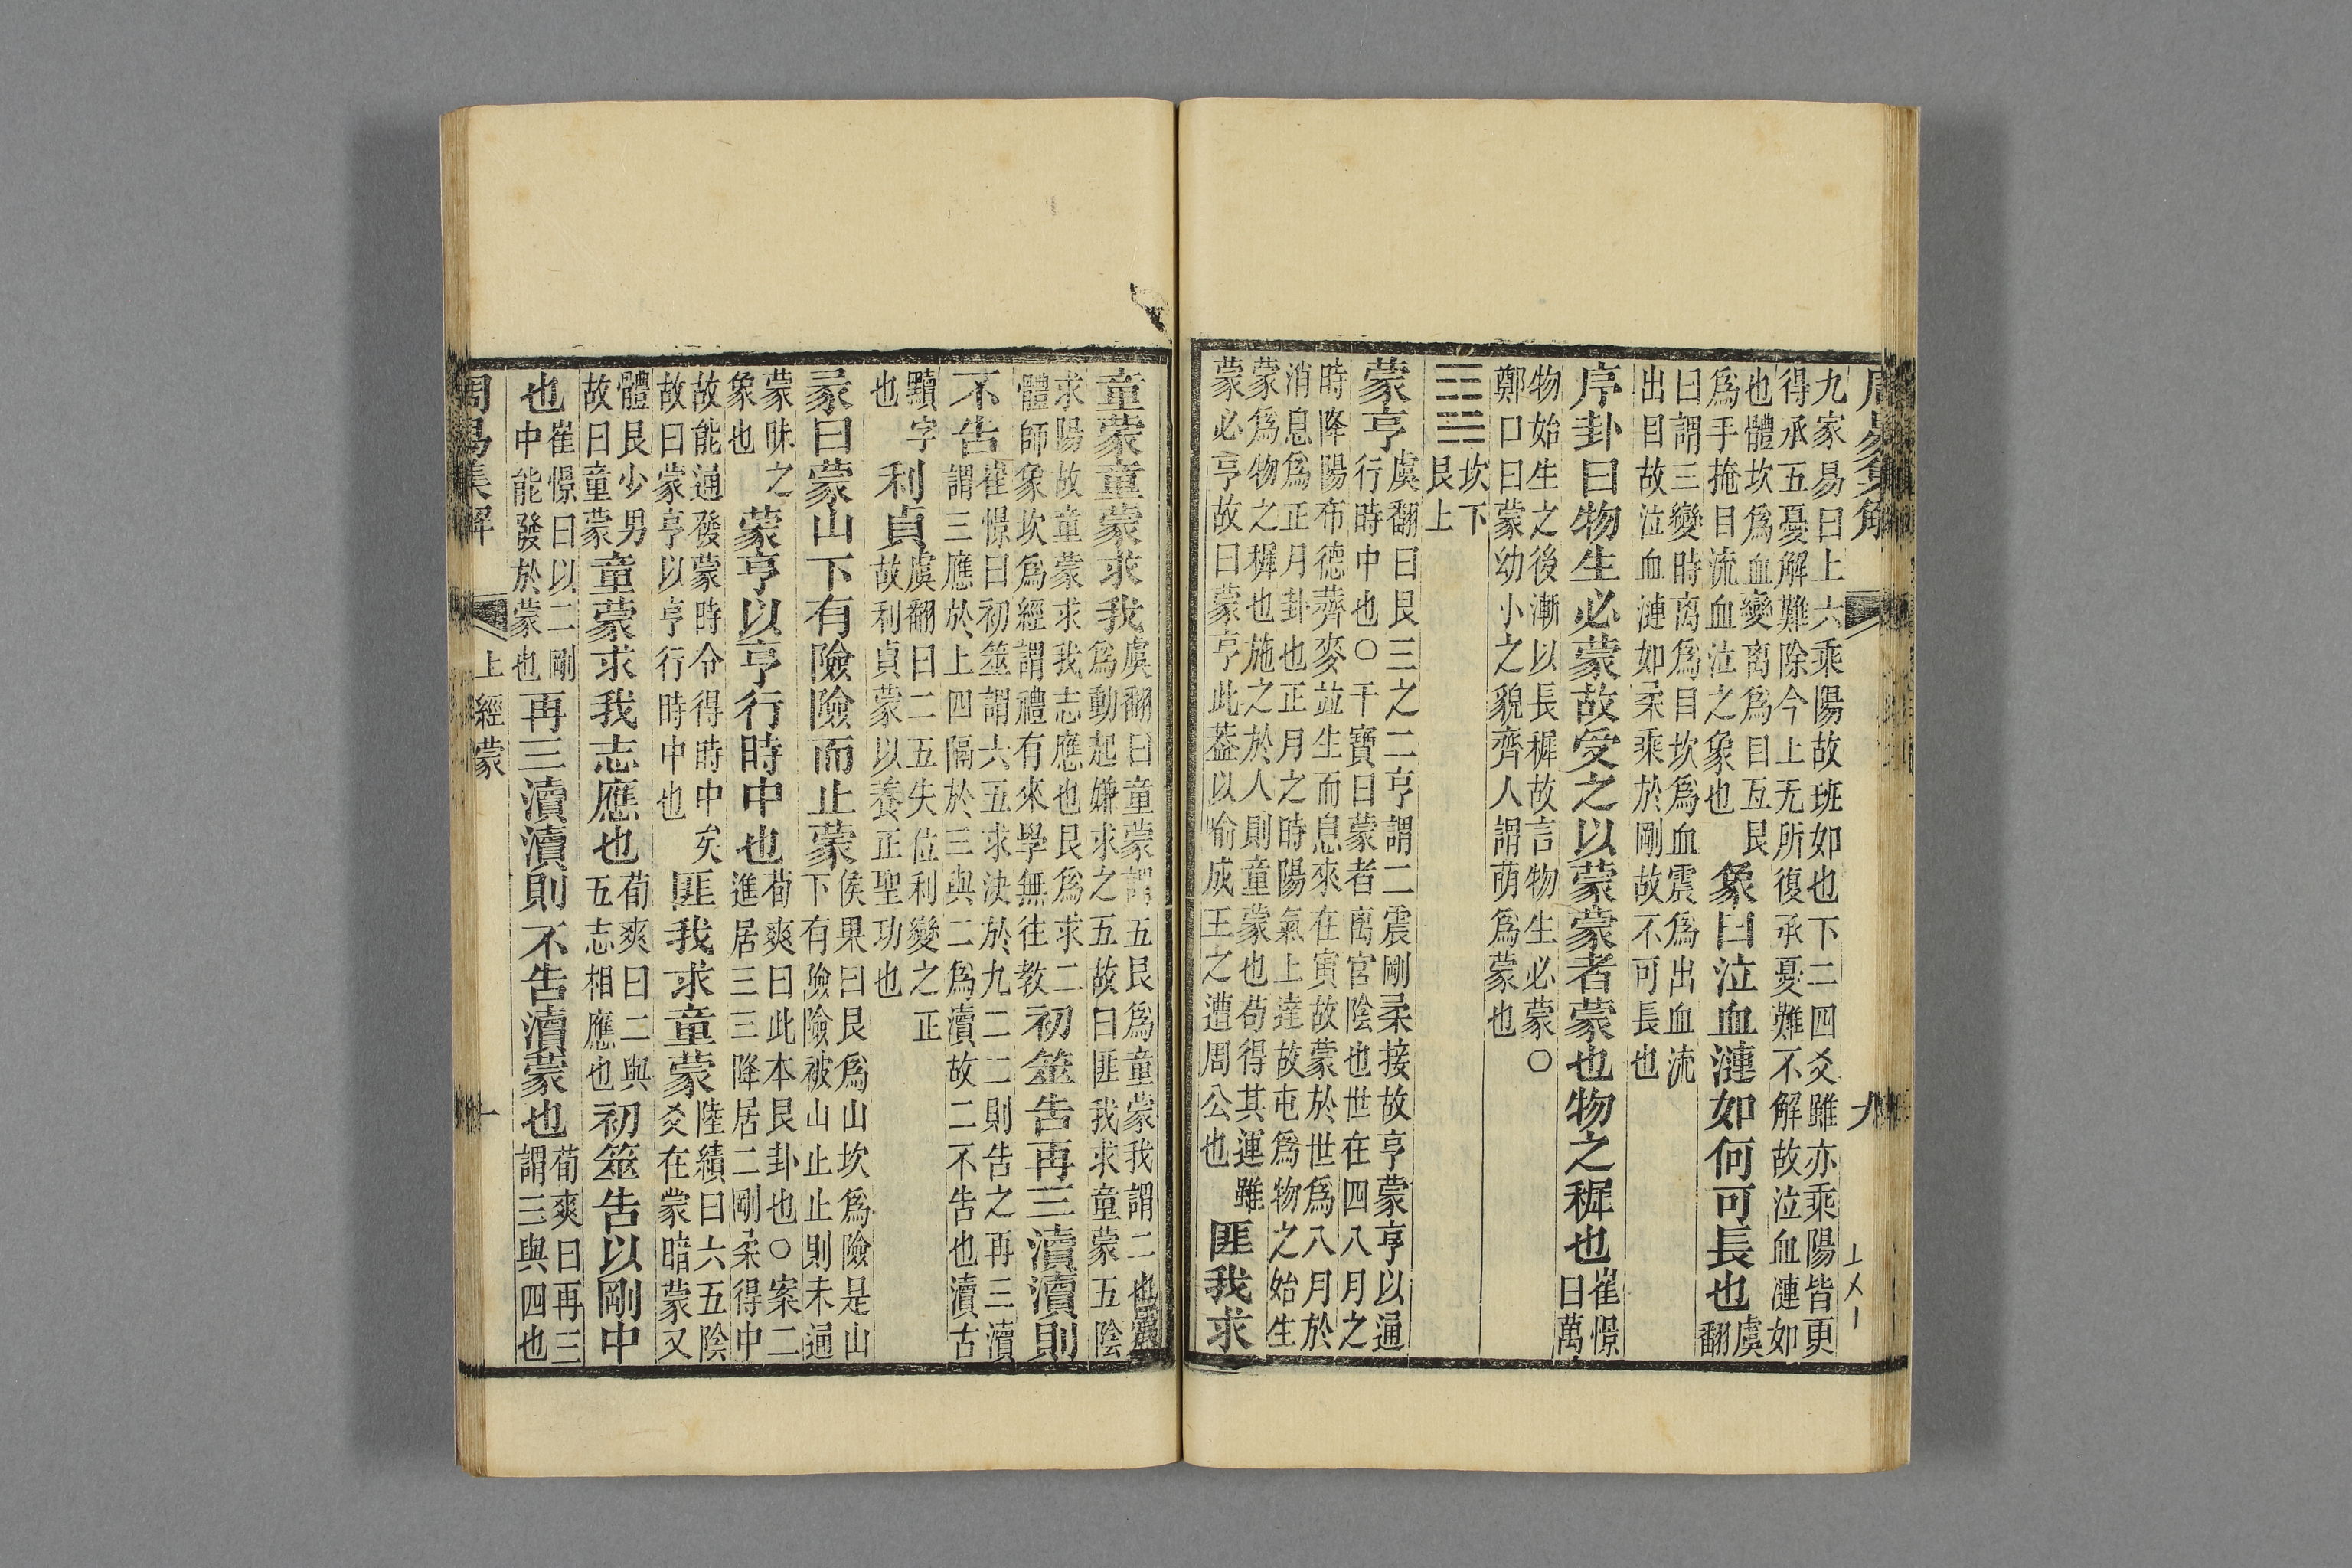 周易集解
九
九家易曰上六乘陽故班如也下二四爻雖亦乘陽皆更
得承五憂解難除今上无所復承憂難不解故泣血漣如
也體坎爲血變离爲目互艮
爲手掩目流血泣之象也
象曰泣血漣如何可長也
虞
翻
曰謂三變時离爲目坎爲血震爲出血流
出目故泣血漣如柔乘於剛故不可長也
序卦曰物生必蒙故受之以蒙蒙者蒙也物之穉也
崔憬
曰萬
物始生之後漸以長穉故言物生必蒙○
鄭口曰蒙幼小之貌齊人謂萌爲蒙也
坎下
艮上
蒙亨
虞翻曰艮三之二亨謂二震剛柔接故亨蒙亨以通
行時中也○干寶曰蒙者離宮陰也世在四八月之
時降陽布德薺麥竝生而息來在寅故蒙於世爲八月於
消息爲正月卦也正月之時陽氣上達故屯爲物之始生
蒙爲物之穉也施之於人則童蒙也苟得其運雖
蒙必亨故曰蒙亨此葢以喻成王之遭周公也
匪我求
童蒙童蒙求我
虞翻曰童蒙謂五艮爲童蒙我謂二也震
爲動起嫌求之五故曰匪我求童蒙五陰
求陽故童蒙求我志應也艮爲求二
體師象坎爲經謂禮有來學無往教
初筮告再三瀆瀆則
不告
崔憬曰初筮謂六五求決於九二二則告之再三瀆
謂三應於上四隔於三與二爲瀆故二不告也瀆古
黷字
也
利貞
虞翻曰二五失位利變之正
故利貞蒙以養正聖功也
彖曰蒙山下有險險而止蒙
侯果曰艮爲山坎爲險是山
下有險險被山止止則未通
蒙昧之
象也
蒙亨以亨行時中也
荀爽曰此本艮卦也○案二
進居三三降居二剛柔得中
故能通發蒙時令得時中矣
故曰蒙亨以亨行時中也
匪我求童蒙
陸績曰六五陰
爻在蒙暗蒙又
體艮少男
故曰童蒙
童蒙求我志應也
荀爽曰二與
五志相應也
初筮告以剛中
也
崔憬曰以二剛
中能發於蒙也
再三瀆瀆則不告瀆蒙也
荀爽曰再三
謂三與四也
周易集解
上經 蒙
十